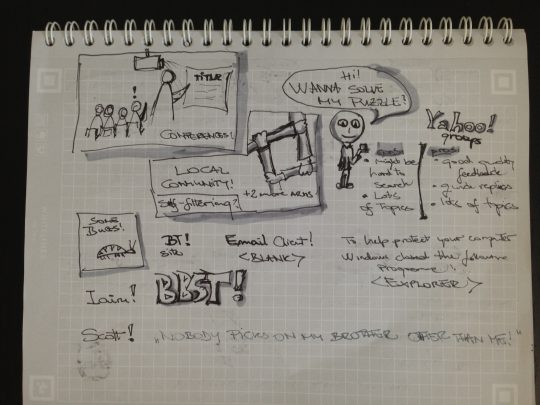 TITLE
!
CONFERENCES!
Hi!
WANNA SOLVE
MY PUZZLE?
Yahoo!
groups
LOCAL
COMMUNITY!
Self-filtering?
+2 more ARMS
• Might be
hard to
search
• Lots
of Topics
• good quality
feedback
• quick replies
• lots of topics
SOME
BUGS!
BT!
site
Email Client!
<BLANK>
To help protect your computer
Windows closed the following
Programme!
<EXPLORER>
Iain!
BBST!
Scott!
„NOBODY PICKS ON MY BROTHER OTHER THAN ME!"